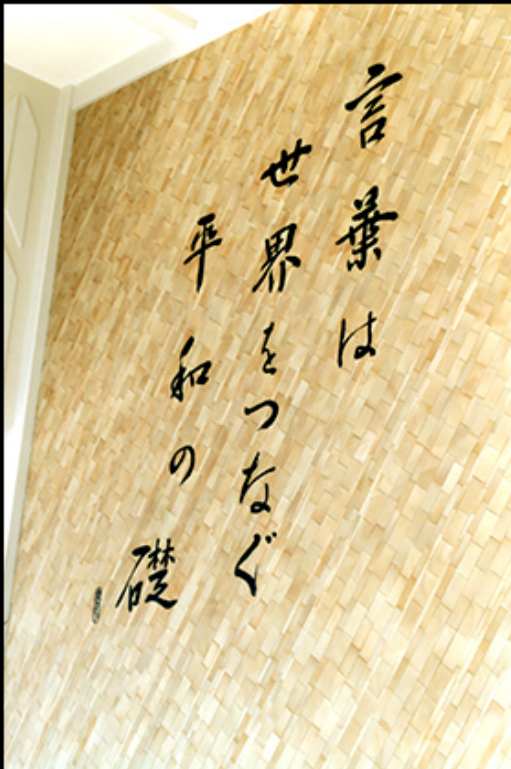 言葉は
世界をつなぐ
平和の
礎